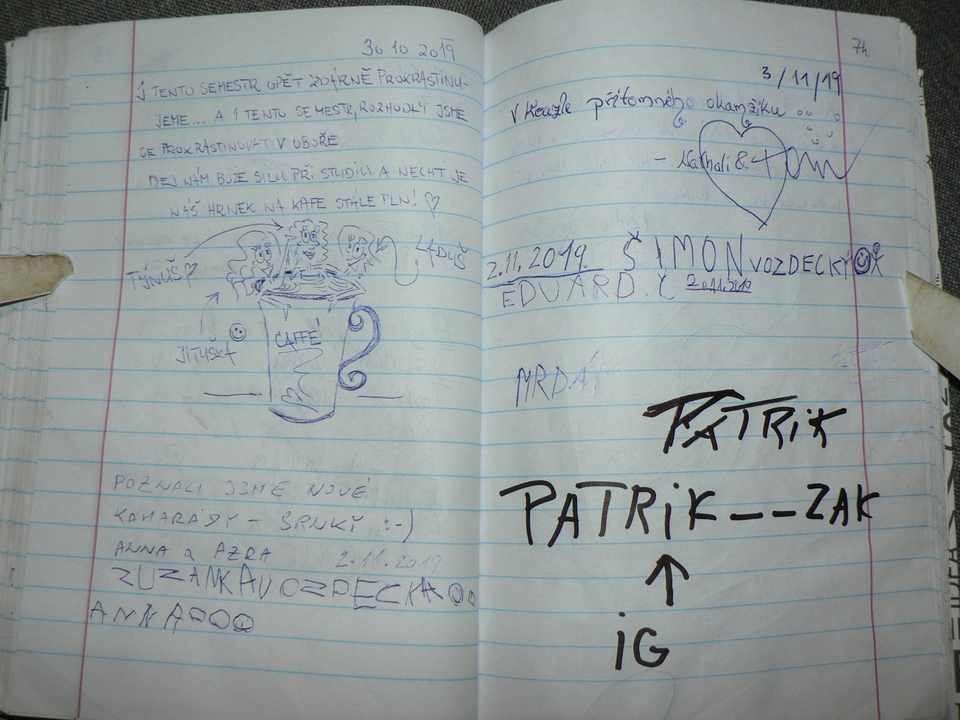 30 10 2019
I TENTO SEMESTR OPĚT ZDÁRNĚ PROKRASTINU-
JEME... A I TENTO SEMESTR, ROZHODLY JSME
SE PROKRASTINOVAT V OBOŘE
DEJ NÁM BOŽE SÍLU PŘI STUDIU A NECHŤ JE
NÁŠ HRNEK NA KAFE STÁLE PLN! ♡
TÝNUŠ ♡
JITUŠKA
CAFFÉ
POZNALI JSME NOVÉ
KAMARÁDY - SRNKY :-)
ANNA a AZRA 2.11.2019
ZUZANKA VOZDECKÁ
ANKA
74
3/11/19
V kouzle přítomného okamžiku
- Nathali & Tom
2.11.2019 ŠIMON VOZDECKÝ
EDUARD.Č 2.11.2019
MRDÁ
PATRiK
PATRiK__ZAK
↑
iG